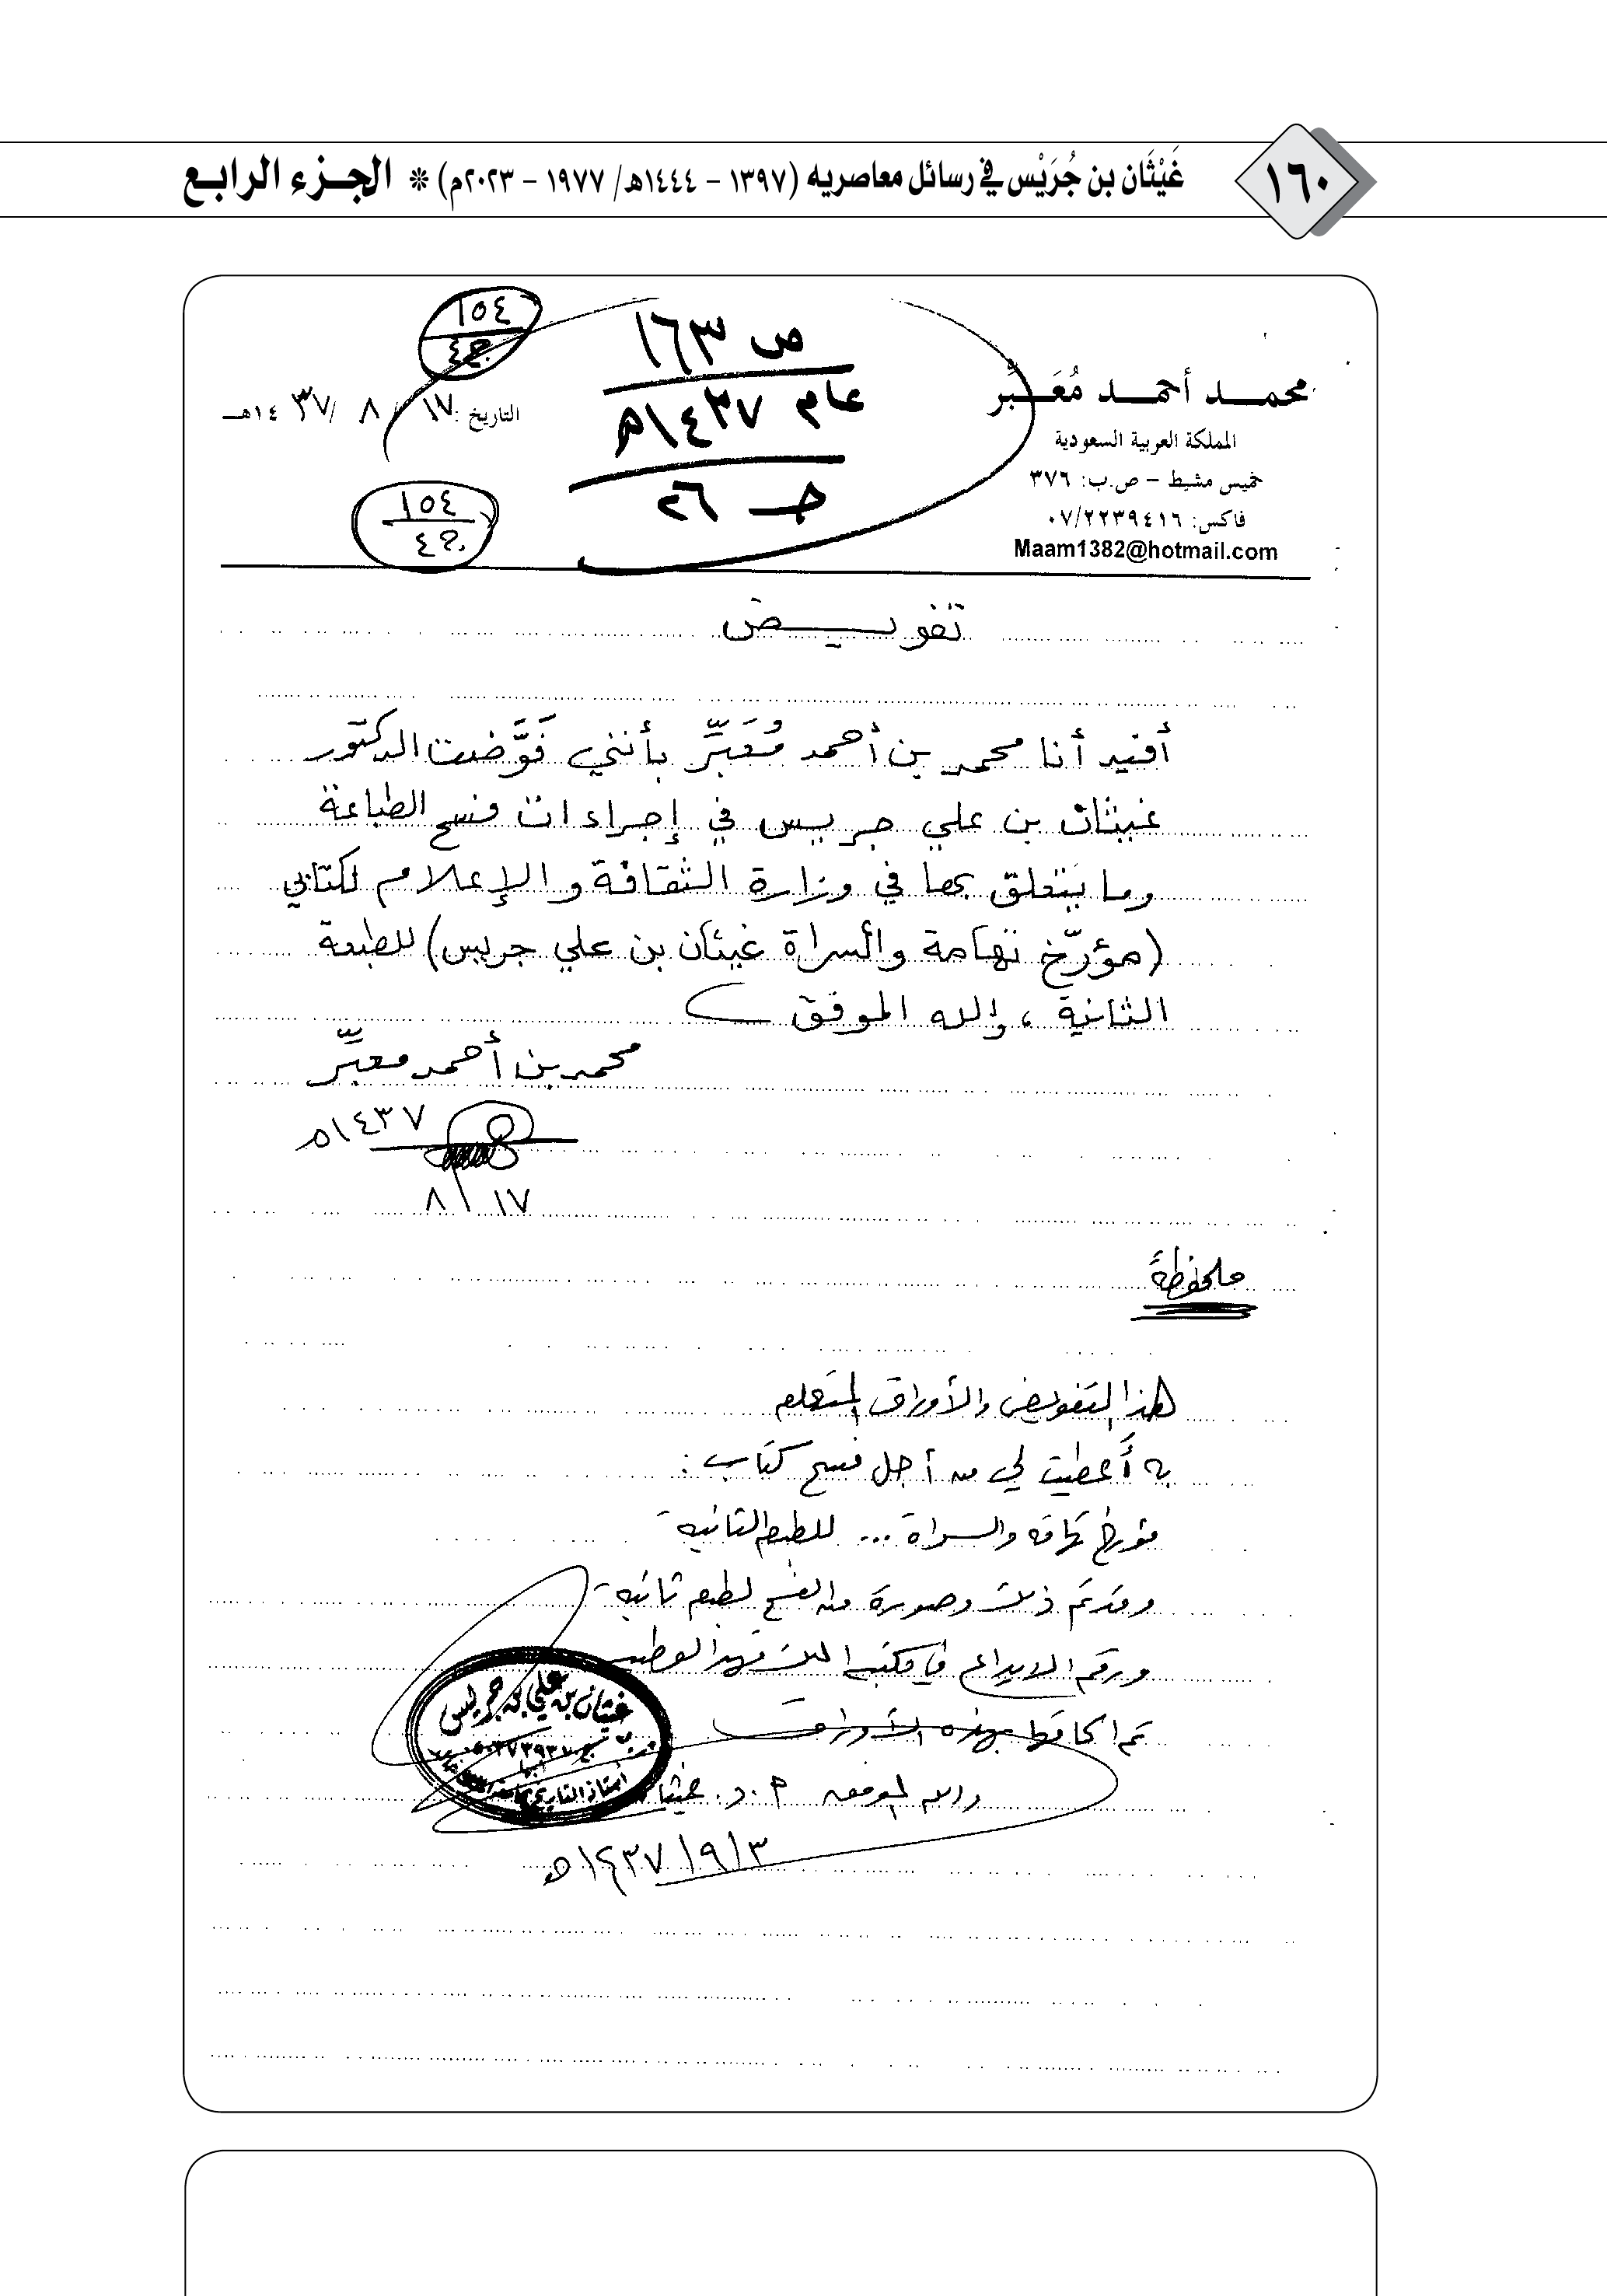 ١٦٠
غَيْثَان بن جُرَيْس في رسائل معاصريه (١٣٩٧ – ١٤٤٤هـ/ ١٩٧٧ – ٢٠٢٣م) * الجزء الرابع
١٥٤
ص ١٦٣
عام ١٤٣٧هـ
جـ ٢٦
محمد أحمد مُعَبِّر
المملكة العربية السعودية
خميس مشيط – ص.ب: ٣٧٦
فاكس: ٠٧/٢٢٣٩٤١٦
Maam1382@hotmail.com
التاريخ: ١٧ / ٨ / ١٤٣٧هـ
١٥٤
تفويض
أفيد أنا محمد بن أحمد مُعَبِّر بأنني فَوَّضت الدكتور
غيثان بن علي جريس في إجراءات فسح الطباعة
وما يتعلق بها في وزارة الثقافة والإعلام لكتابي
(مؤرّخ تهامة والسراة غيثان بن علي جريس) للطبعة
الثانية ، والله الموفق
محمد بن أحمد معبِّر
١٤٣٧هـ
١٧ / ٨
ملحوظة
هذا التفويض والأوراق المتعلقة
به أعطيت لي من أجل فسح كتاب :
مؤرخ تهامة والسراة ... للطبعة الثانية
وقد تم ذلك وصورة من الفسح لطبعة ثانية
ورقم الايداع في مكتبة الملك فهد الوطنية
تم الحاقها بهذه الأوراق
والله الموفق أ.د. غيثان
غيثان بن علي بن جريس
أستاذ التاريخ
١٤٣٧/٩/٣هـ